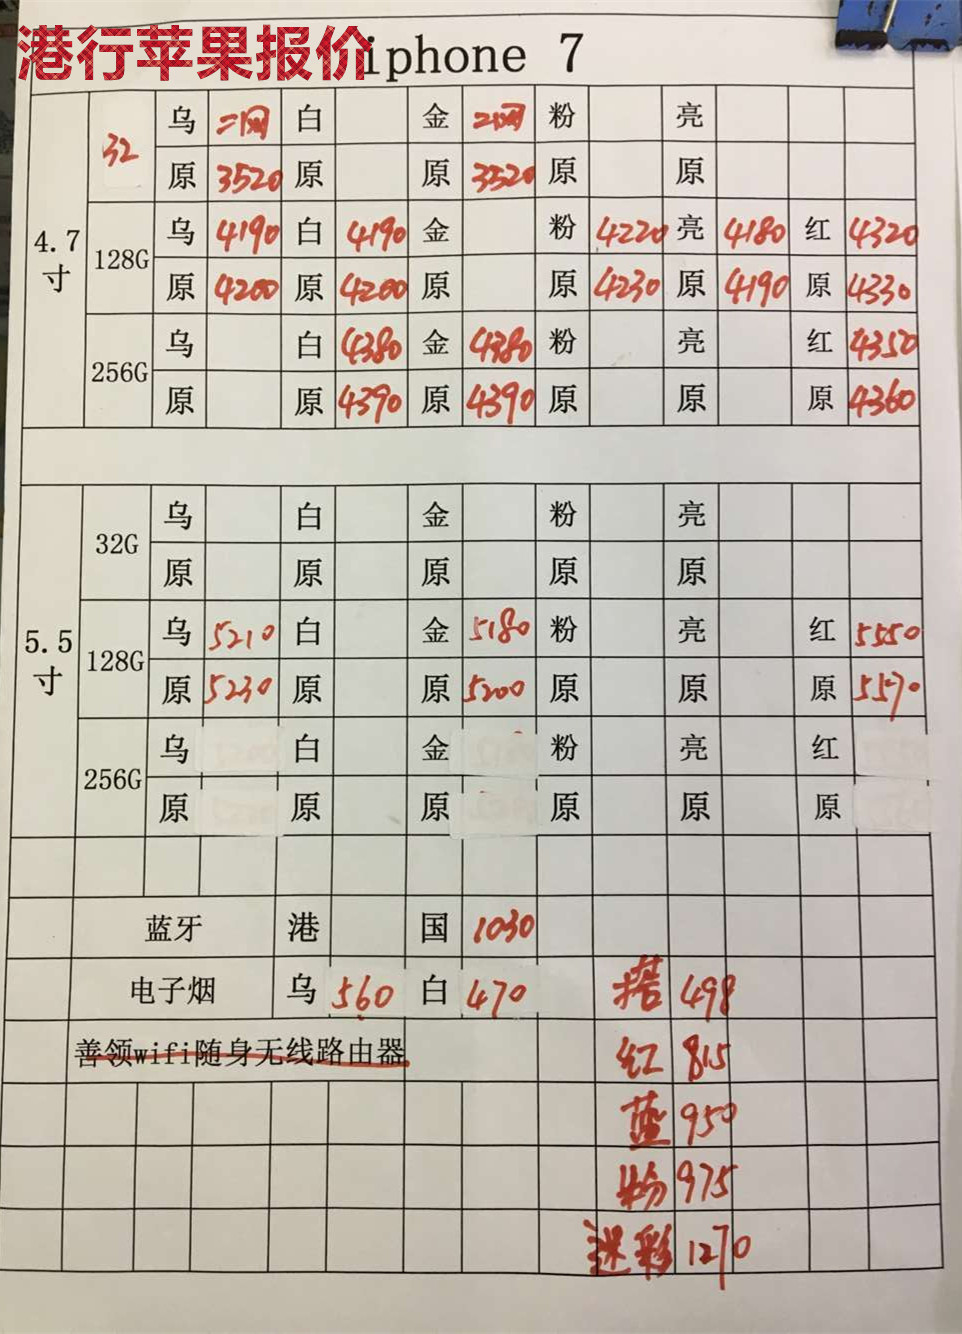 港行苹果报价
iphone 7
4.7寸
32 乌 二网 白 金 二网 粉 亮
原 3520 原 原 3520 原 原
128G 乌 4190 白 4190 金 粉 4220 亮 4180 红 4320
原 4200 原 4200 原 原 4230 原 4190 原 4330
256G 乌 白 4380 金 4380 粉 亮 红 4350
原 原 4390 原 4390 原 原 原 4360
5.5寸
32G 乌 白 金 粉 亮
原 原 原 原 原
128G 乌 5210 白 金 5180 粉 亮 红 5550
原 5230 原 原 5200 原 原 原 5570
256G 乌 白 金 粉 亮 红
原 原 原 原 原 原
蓝牙 港 国 1030
电子烟 乌 560 白 470 498
善领wifi随身无线路由器 红 815
蓝 950
粉 975
迷彩 1270